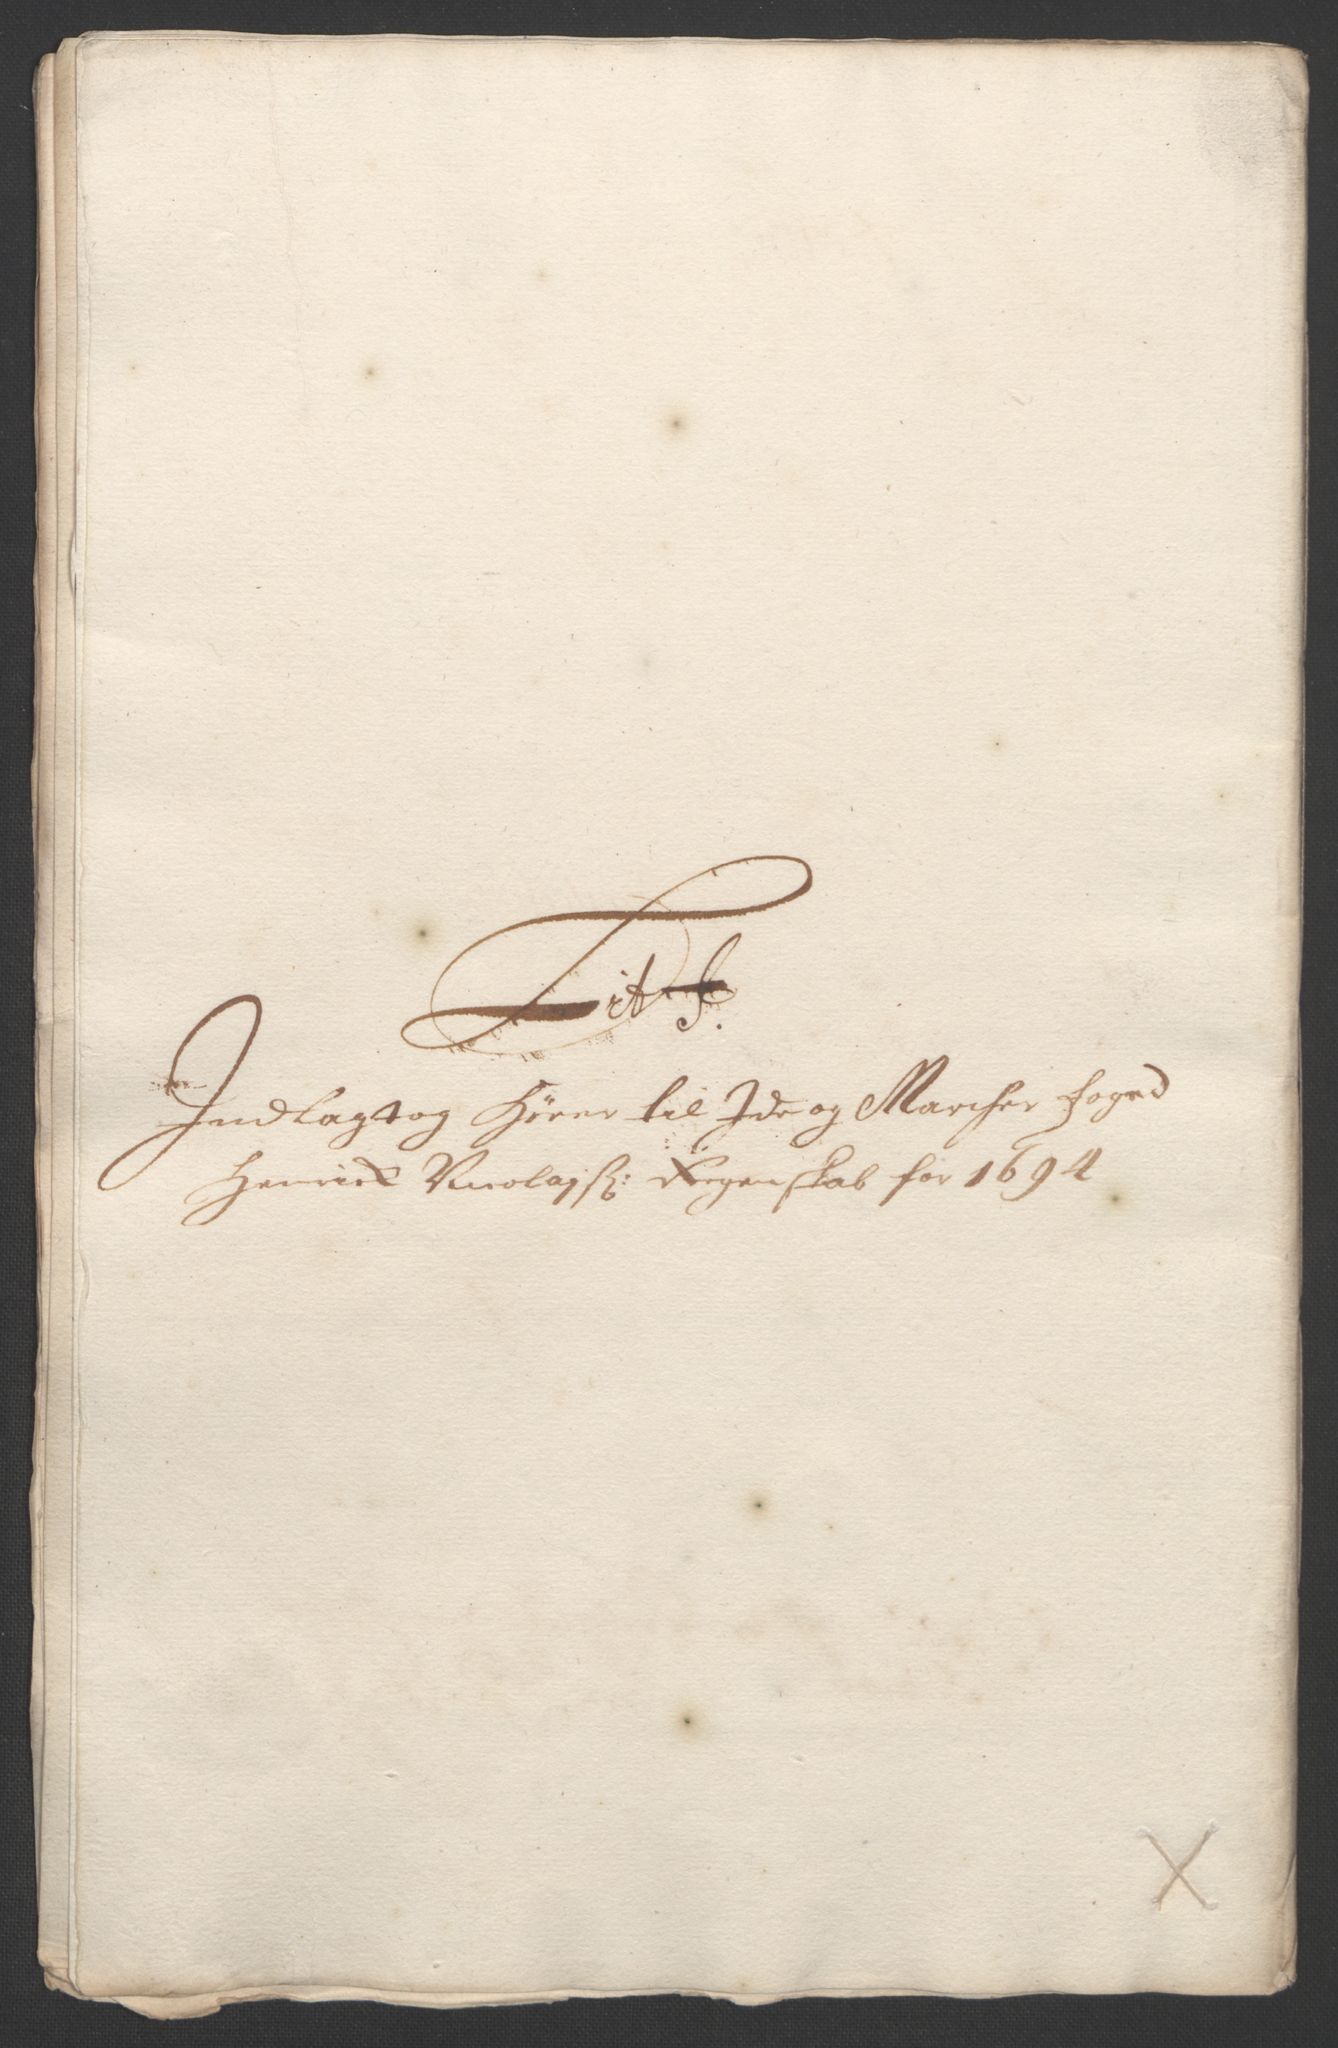 Lit f.
Indlagt og hörer til Ide og Marcher foged
Henrick Knolajß: Regenskab for 1694